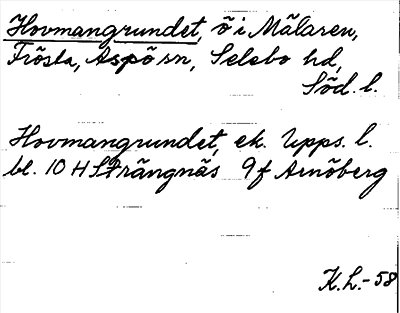 Hovmangrundet, ö i Mälaren,
Frösta, Aspö sn, Selebo hd,
Söd. l.
Hovmangrundet, ek. Upps. l.
bl. 10 H Strängnäs 9 f Arnöberg
K.L.-58